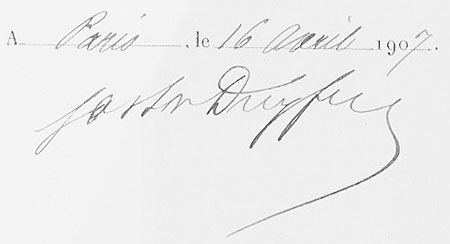 A Paris, le 16 avril 1907.
Gaston Dreyfus